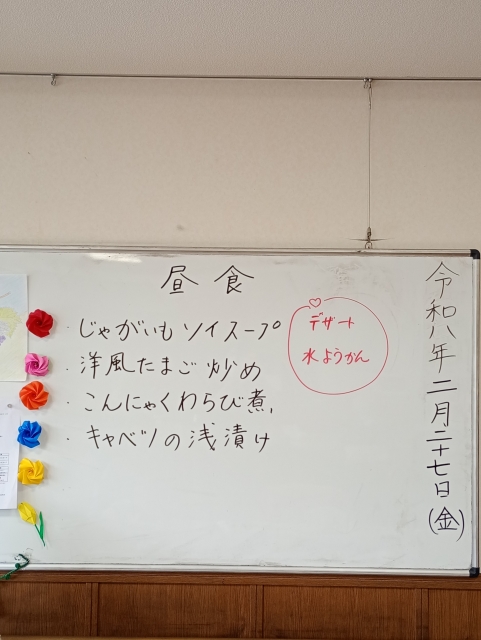 令和八年 二月二十七日(金)
昼食
・じゃがいもソイスープ
・洋風たまご炒め
・こんにゃくわらび煮
・キャベツの浅漬け
デザート
水ようかん